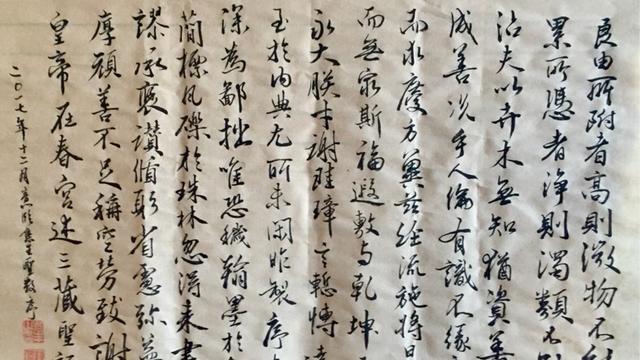 良由所附者高則微物不
累所憑者淨則濁類不
沾夫以卉木無知猶資善
成善況乎人倫有識不緣
而求慶方冀茲經流施將日
而無窮斯福遐敷與乾坤
永大朕才謝珪璋言慙博
至於內典尤所未閑昨製序
深為鄙拙唯恐穢翰墨於
簡標瓦礫於珠林忽得來書
謬承褒讚循躬省慮彌益
厚顏善不足稱空勞致謝
皇帝在春宮述三藏聖記
二〇一七年十二月臨集王聖教序